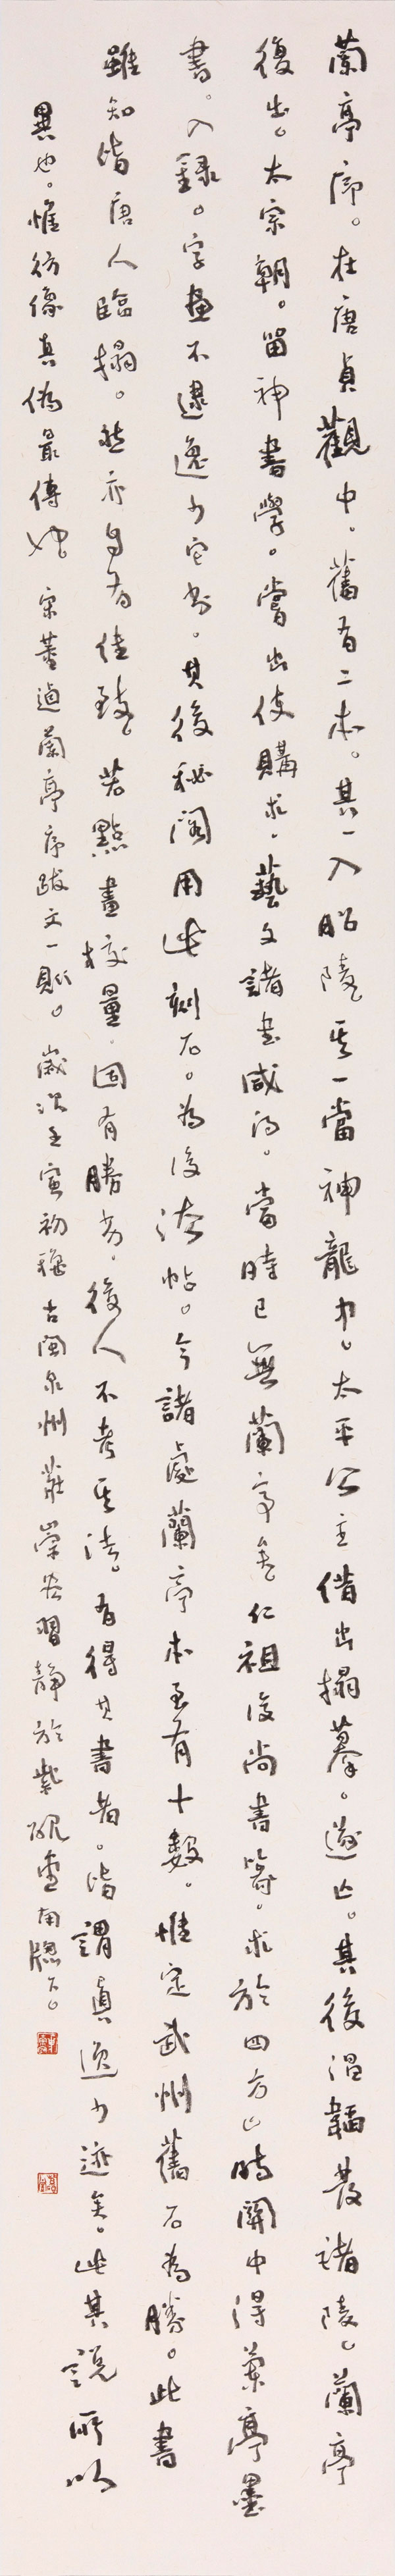 蘭亭序。在唐貞觀中。舊有二本。其一入昭陵其一當神龍中。太平公主借出搨摹。遂亡。其後溫韜發諸陵。蘭亭
復出。太宗朝。留神書學。嘗出使購求。藝文諸書咸得。當時已無蘭亭矣仁祖復尚書篆。求於四方亡時關中得蘭亭墨
書。入錄。字畫不逮逸少它書。其後秘閣用此刻石。為後法帖。今諸處蘭亭本至有十數。惟定武州舊石為勝。此書
雖知皆唐人臨搨。然亦自有佳致。若點畫校量。固有勝劣。後人不考其法。有得其書者。皆謂真逸少迹矣。此其說所以
異也。惟彷像真偽最傳也。宋董逌蘭亭序跋文一則。歲次壬寅初秋古閩泉州莊榮安習靜於紫硯堂南窗下。